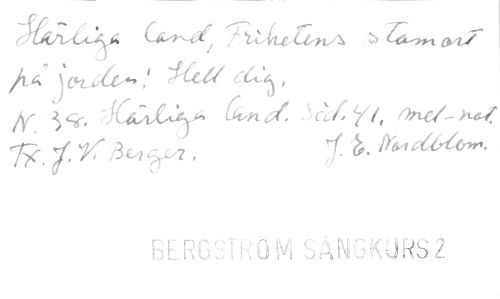 Härliga land, Frihetens stamort
på jorden! Hell dig.
N. 38. Härliga land. Sid. 41. mel-not.
Tx. J. V. Berger. J. E. Nordblom.
BERGSTRÖM SÅNGKURS 2